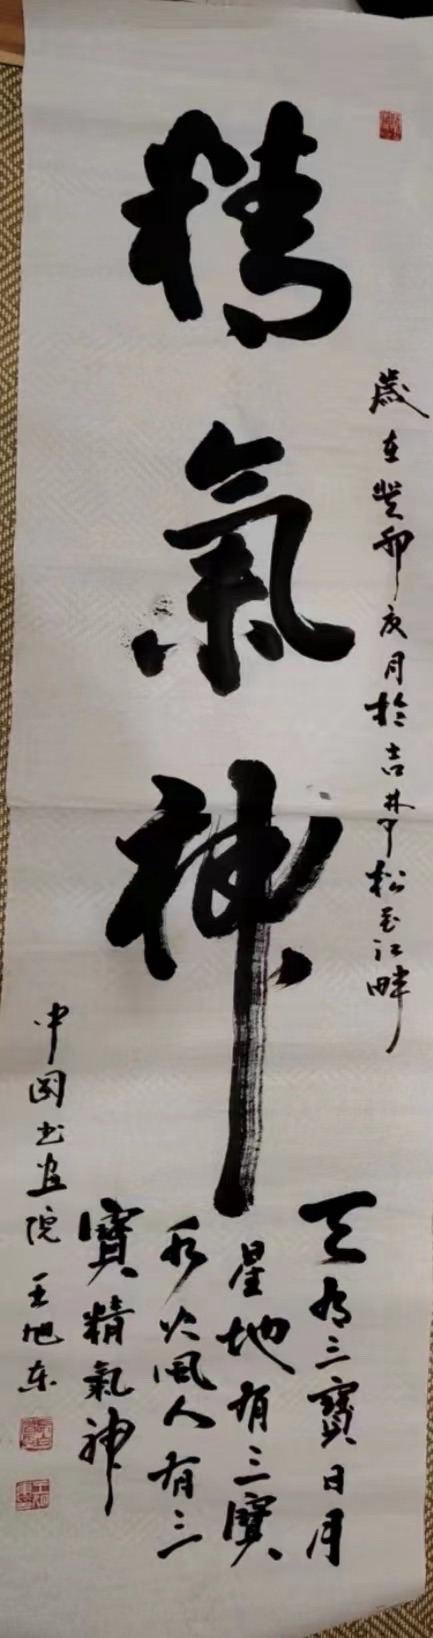 精氣神
歲在癸卯庚月於吉林市松花江畔
天有三寶日月
星地有三寶
水火風人有三
寶精氣神
中國書画院王旭东